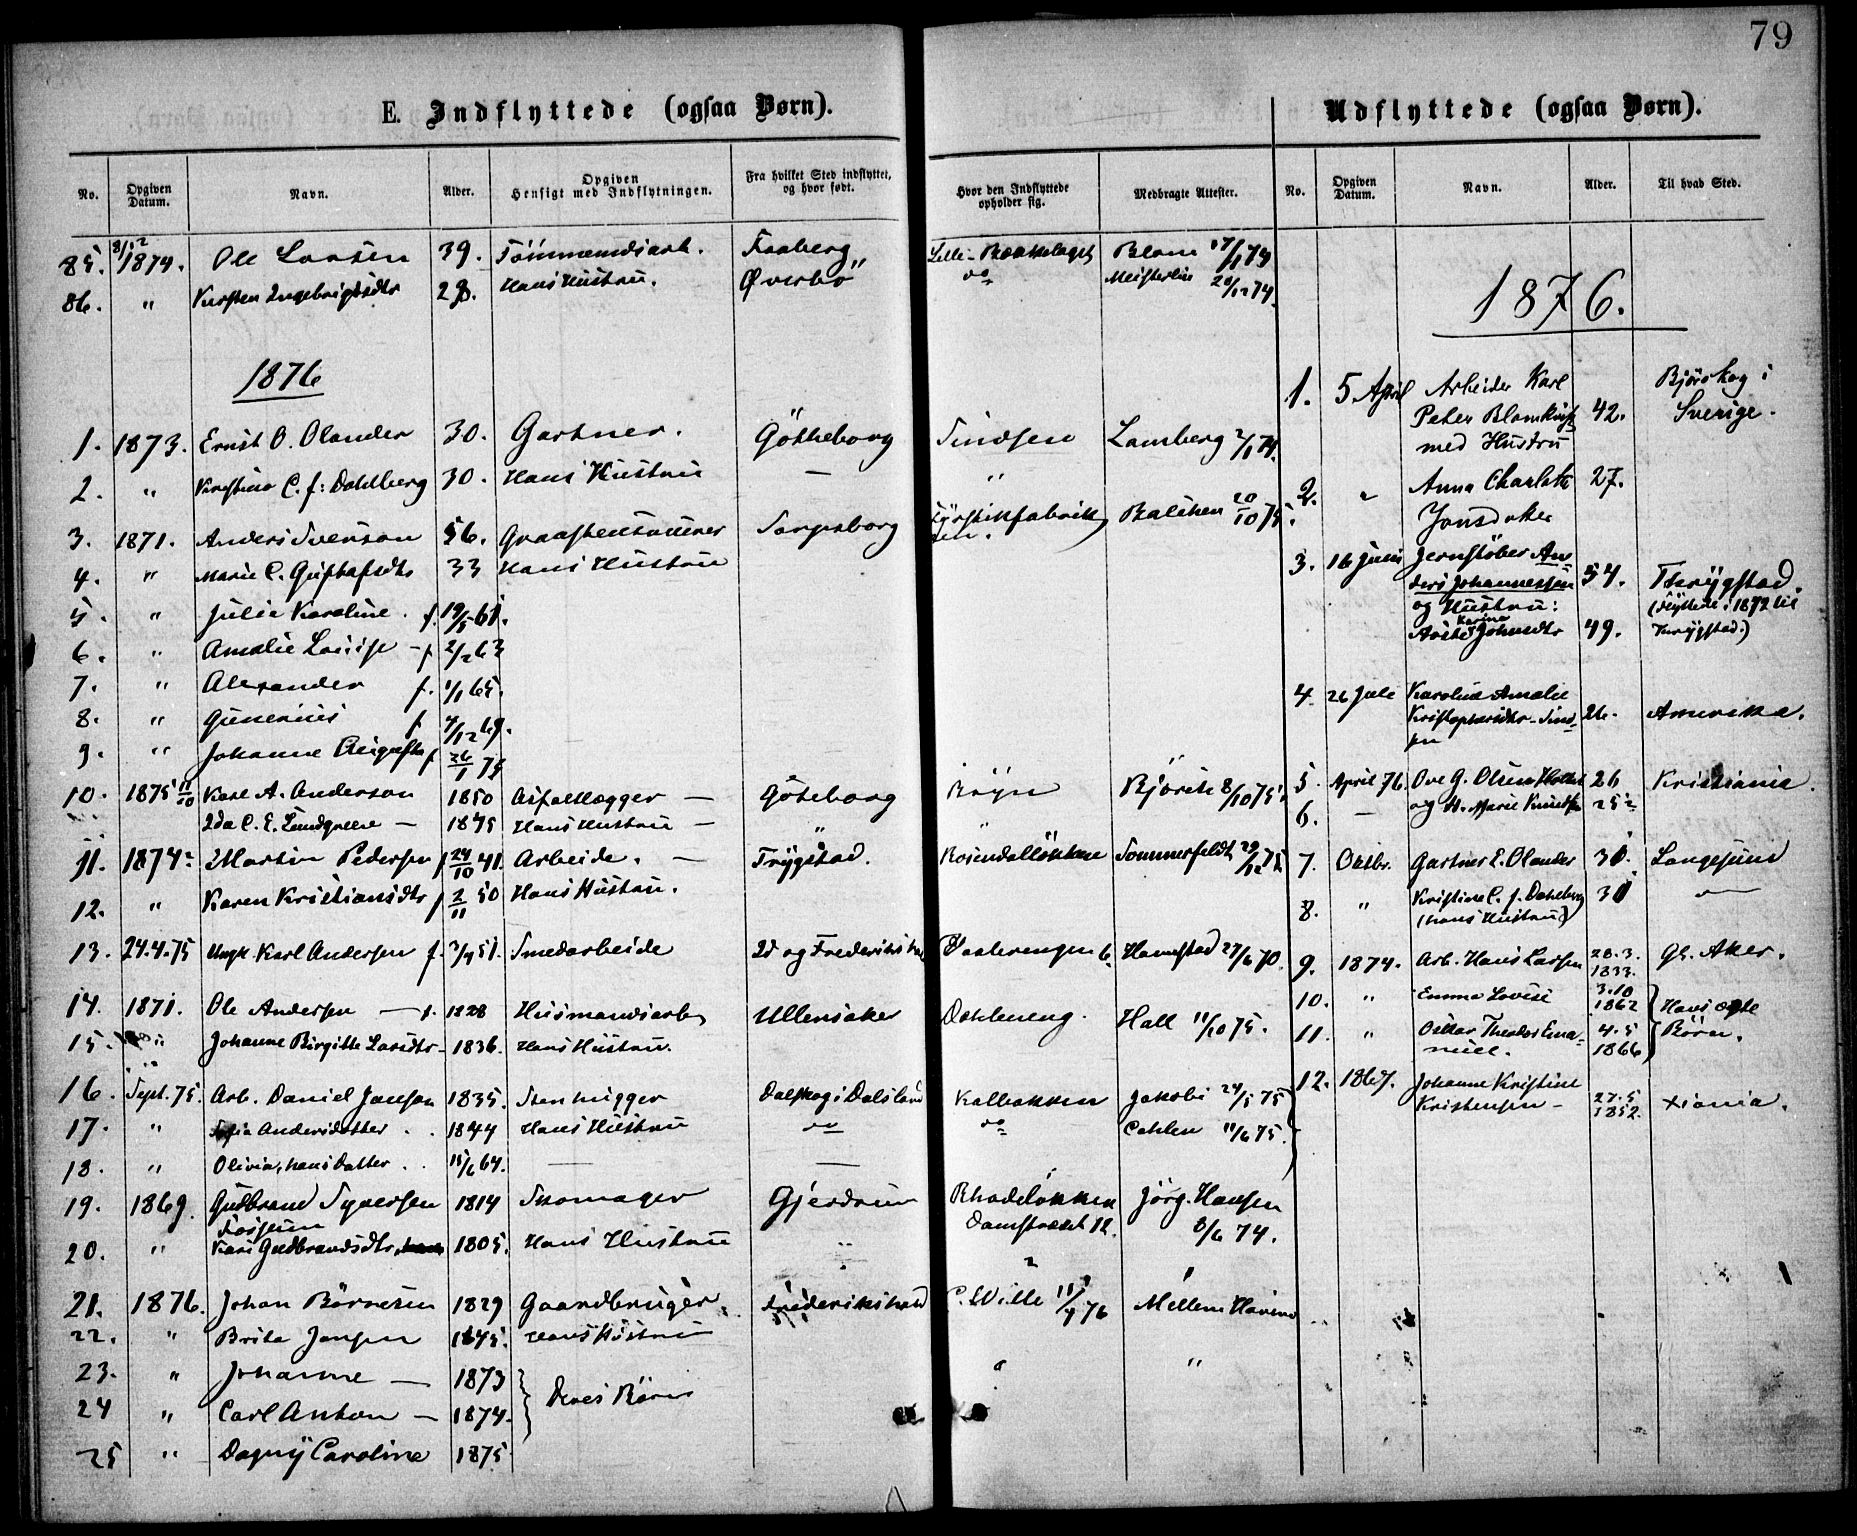 79
E. Indflyttede (ogsaa Børn).
Udflyttede (ogsaa Børn).
No. Opgiven Datum. Navn. Alder. Opgiven Hensigt med Indflytningen. Fra hvilket Sted indflyttet, og hvor født. Hvor den Indflyttede opholder sig. Medbragte Attester.
No. Opgiven Datum. Navn. Alder. Til hvad Sted.
85. 8/12 1874. Ole Larsen 39. Tømmermandsarb. Faaberg Lille-Bækkelaget Blom
86. " Kirsten Ingebrigtsdtr 28. Hans Hustru. Øverbø do 74.
1876
1. 1873. Ernst O. Olander 30. Gartner. Götheborg Sindsen Lamberg 2/1 74.
2. " Kristina C. f: Dahlberg 30. Hans Hustru — "
3. 1871. Anders Svenson 56. Graastensmurer Sarpsborg Balchen 20/10 75.
4. " Marie C. Gustafsdtr 33 Hans Hustru
5. " Julie Karoline. f. 19/5 61.
6. " Amalie Louise - f 2/2 63
7. " Alexander f. 1/1 65.
8. " Gunerius f 4/12 69.
9. " Johanne Augusta f 26/1 75
10. 1875 11/10 Karl A. Anderson 1850 Asfaltlægger — Göteborg Røyn Bjørck 8/10 75.
Ida C. E. Lundgreen — 1875 Hans Hustru — "
11. 1874. Martin Pedersen f 24/10 41. Arbeide. — Trygstad. Rosendalløkken Sommerfeldt 29/12 75
12. " Karen Kristiansdtr f 2/11 50 Hans Hustru.
13. 24.4.75 Ungk. Karl Andersen f. 3/4 51. Smedarbeide Id og Frederikshald Vaalerengen 6. Hannestad 27/6 70.
14. 1871. Ole Andersen — f. 1828 Husmandsarb. Ullensaker Dahleneng. Hall 11/10 75.
15. " Johanne Birgitte Larsdtr- 1836. Hans Hustru.
16. Sept. 75. Arb. Daniel Janson 1835. Stenhugger Dalskog i Dalsland Kalbakken Jakobi 24/5 75
17. " Sofia Andersdotter . . 1844 Hans Hustru do do Cahlen 11/6 75.
18. " Olivia, hans Datter . . 15/6 64. — —
19. 1869. Gudbrand Syversen Fossum 1814 Skomager Gjerdrum Rhodeløkken Damstrædet 12. Jörg. Hansen 8/6 74.
20. " Kari Gudbrandsdtr. 1805. Hans Hustru "
21. 1876. Johan Börresen 1829 Gaardbruger. Frederikshald C. Wille 11/4 76 Mellem Havnen
22. " Brita Jensen 1845. Hans Hustru
23. " Johanne — 1873 " "
24 " Carl Anton — 1874. Deres Børn
25 " Dagny Caroline 1875.
1876.
1. 5 April Arbeider Karl
Peter Blomkvist 42. Bjørskog i Sverige.
med Hustru
2. " Anna Charlotte 27.
Jonsdoter
3. 16 Juni Jernstøber An-
ders Johannessen 54. Trygstad.
og Hustru: (flyttede i 1872 til
Karina Johnsdtr 49. Trygstad.)
4. 26 Juli Karoline Amalie
Kristophersdtr. Sind- 26. Amerika.
sen
5. April 76. Ove G. Olsen 26 Kristiania.
6. — og H. Marie 25
7. Oktbr. Gartner E. Olander 30. Langesund
8. " Kristine C. f. Dahlberg 30 —
(hans Hustru)
9. 1874. Arb. Hans Larsen 28.3. 1833. Gl. Aker.
10. " Emma Lovise 3.10 1862 Hans ægte
11. " Oskar Theodor Ema- 4.5 1866 Børn.
nuel.
12. 1867. Johanne Kristine
Kristensen - 27.5 1852. Xiania.